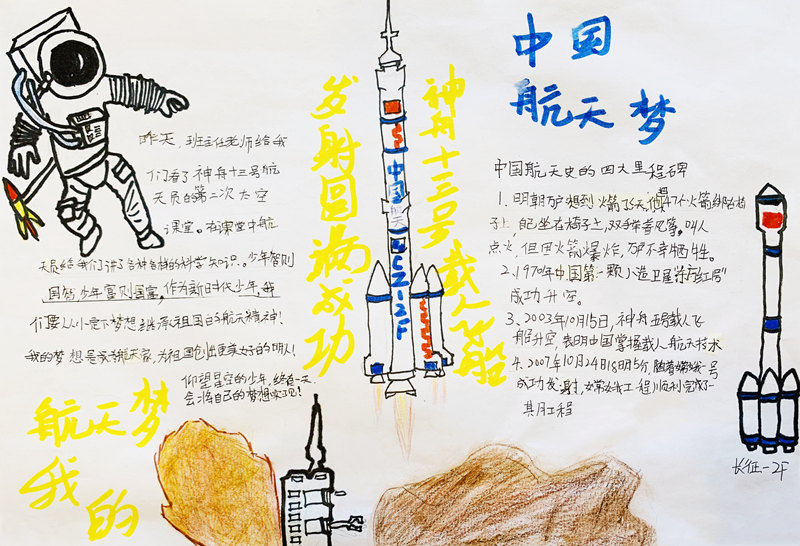 中国
航天梦
神舟十三号载人飞船
发射圆满成功
中国航天
CZ-2F
昨天,班主任老师给我
们看了神舟十三号航
天员的第二次太空
课堂。在课堂中航
天员给我们讲了各种各样的科学知识。少年智则
国智,少年富则国富,作为新时代少年,我
们要从小定下梦想继承祖国的航天精神!
我的梦想是成为航天家,为祖国创出更美好的明天!
仰望星空的少年,终有一天
会将自己的梦想实现!
我的
航天梦
中国航天史的四大里程碑
1.明朝万户想到火箭了
47个火箭绑
上,自己坐在椅子上,双手举着风筝。叫人
点火,但因火箭爆炸,万户不幸牺牲。
2.1970年中国第一颗人造卫星东方红1号
成功升空。
3.2003年10月15日,神舟五号载人飞
船升空,表明中国掌握载人航天技术
4.2007年10月24日18时5分,随着嫦娥一号
成功发射,嫦娥工程顺利完成了一
其月工程
长征-2F